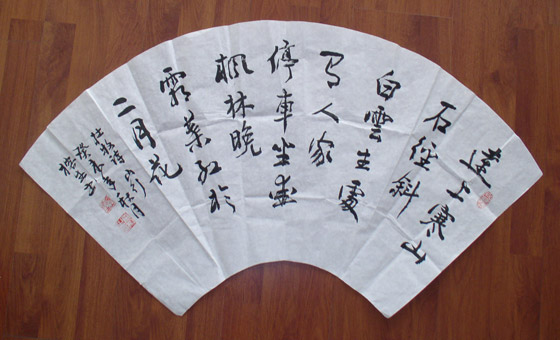 遠上寒山
石徑斜
白雲生處
有人家
停車坐愛
楓林晚
霜葉紅於
二月花
杜牧詩山行
癸未年秋月